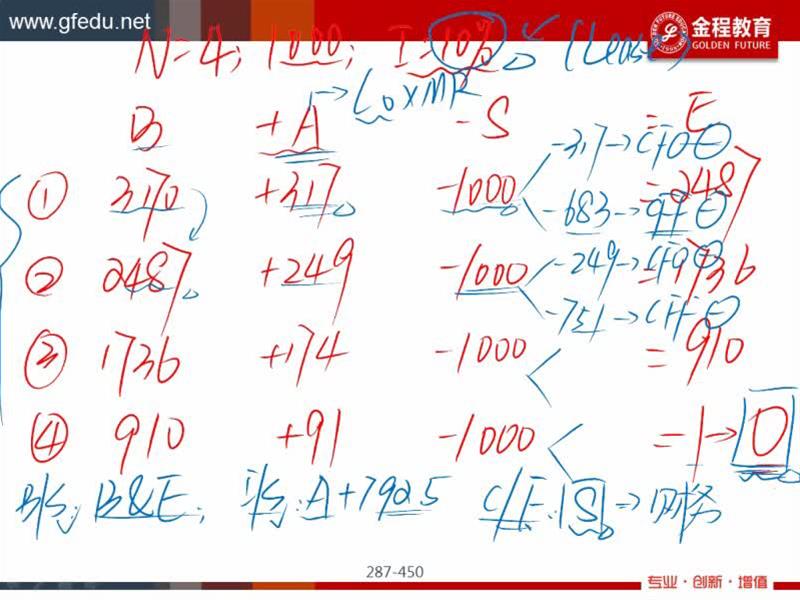 www.gfedu.net 金程教育
GOLDEN FUTURE
N=4; 1000; I=10% (Lease)
→L0×MR
B +A -S = E
① 3170 +317 -1000 = 2487
-317→CFO⊖
-683→CFF⊖
② 2487 +249 -1000 = 1736
-249→CFO⊖
-751→CFF⊖
③ 1736 +174 -1000 = 910
④ 910 +91 -1000 = 1→0
B/S: B&E; I/S: A+792.5 C/F: S⇒财务
287-450
专业·创新·增值